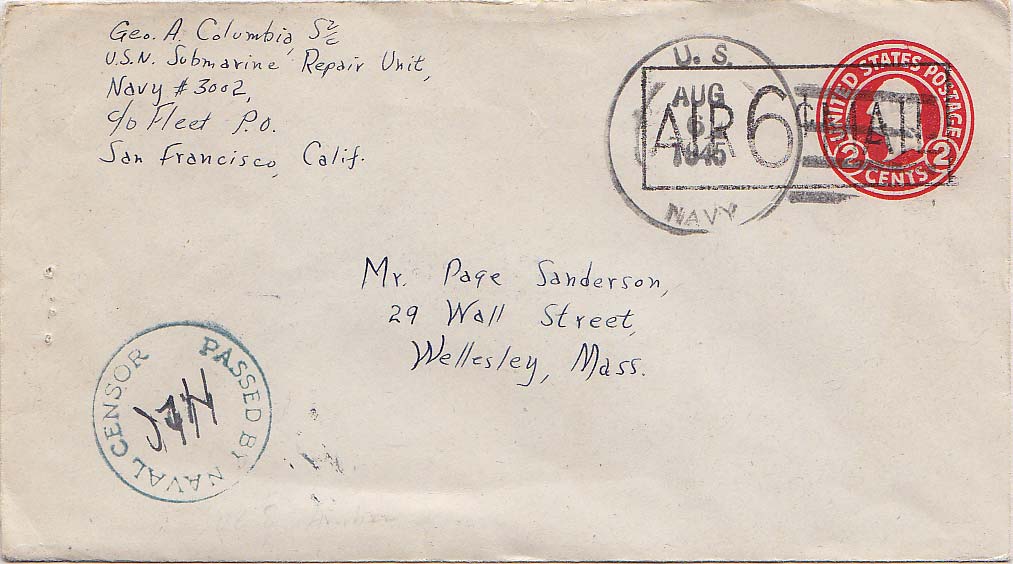 Geo. A. Columbia, S2/c
U.S.N. Submarine Repair Unit,
Navy #3002,
c/o Fleet P.O.
San Francisco, Calif.
U. S.
AUG
6
1945
NAVY
AIR 6¢ MAIL
UNITED STATES POSTAGE
2 CENTS 2
Mr. Page Sanderson,
29 Wall Street,
Wellesley, Mass.
PASSED BY NAVAL CENSOR